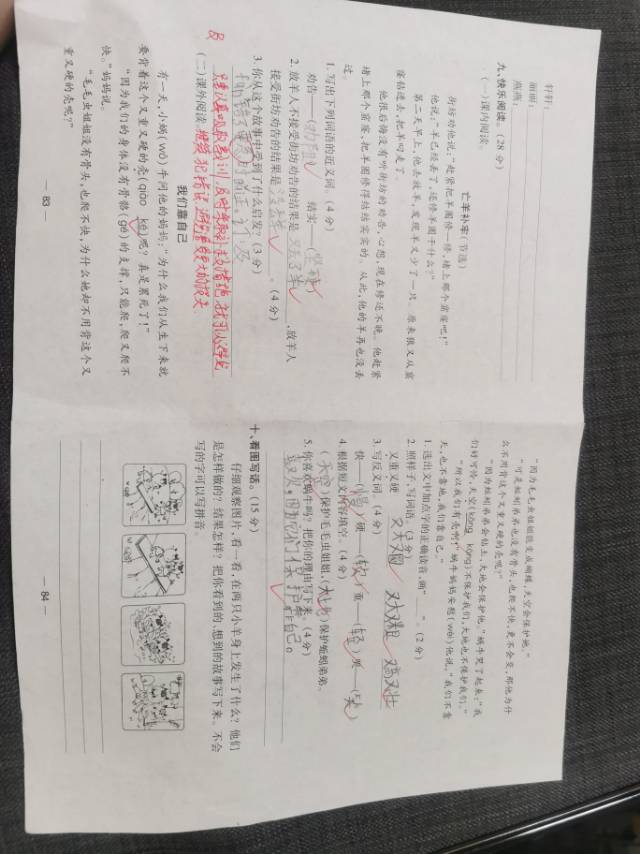 轩轩：
丽丽：
燕燕：
九、快乐阅读。（28 分）
（一）课内阅读。
亡羊补牢（节选）
街坊劝他说：“赶紧把羊圈修一修，堵上那个窟窿吧！”
他说：“羊已经丢了，还修羊圈干什么？”
第二天早上，他去放羊，发现羊又少了一只。原来狼又从窟
窿钻进去，把羊叼走了。
他很后悔没有听街坊的劝告，心想，现在修还不晚。他赶紧
堵上那个窟窿，把羊圈修得结结实实的。从此，他的羊再也没丢
过。
1. 写出下列词语的近义词。（4 分）
劝告——（劝阻） 结实——（坚硬）
2. 放羊人不接受街坊劝告的结果是 又丢了羊 ，放羊人
接受街坊劝告的结果是 。（4 分）
3. 你从这个故事中受到了什么启发？（3 分）
只要认真吸取教训，及时采取补救措施，就可以
（二）课外阅读。
我们靠自己
有一天，小蜗(wō)牛问他的妈妈：“为什么我们从生下来就
要背着这个又重又硬的壳(qiào ké)呢？真是累死了！”
“因为我们的身体没有骨骼(gé)的支撑，只能爬，爬又爬不
快。”妈妈说。
“毛毛虫姐姐没有骨头，也爬不快，为什么她却不用背这个又
重又硬的壳呢？”
— 83 —
“因为毛毛虫姐姐能变成蝴蝶，天空会保护她。”
“可是蚯蚓弟弟也没有骨头，也爬不快，更不会变，那他为什
么不用背这个又重又硬的壳呢？”
“因为蚯蚓弟弟会钻土，大地会保护他。”蜗牛哭了起来：“我
们好可怜，天空(kōng kòng)不保护我们，大地也不保护我们。”
“所以我们有壳啊！”蜗牛妈妈安慰(wèi)他说，“我们不靠
天，也不靠地，我们靠自己。”
1. 选出文中加点字的正确读音，画“ ”。（2 分）
2. 照样子，写词语。（3 分）
又重又硬 又大又圆 又大又粗 又高又壮
3. 写反义词。（4 分）
快——（慢） 硬——（软） 重——（轻） 哭——（笑）
4. 根据短文内容填空。（4 分）
（天空）保护毛毛虫姐姐，（大地）保护蚯蚓弟弟。
5. 你喜欢蜗牛吗？把你的理由写下来。（4 分）
喜欢，因为它
自己。
十、看图写话。（15 分）
仔细观察图片，看一看，在两只小羊身上发生了什么？他们
是怎样做的？结果怎样？把你看到的、想到的故事写下来。不会
写的字可以写拼音。
— 84 —